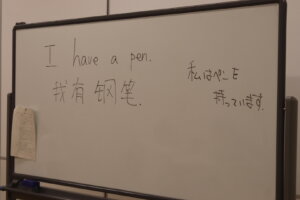 I have a pen.
我有钢笔.
私はペンを
持っています.